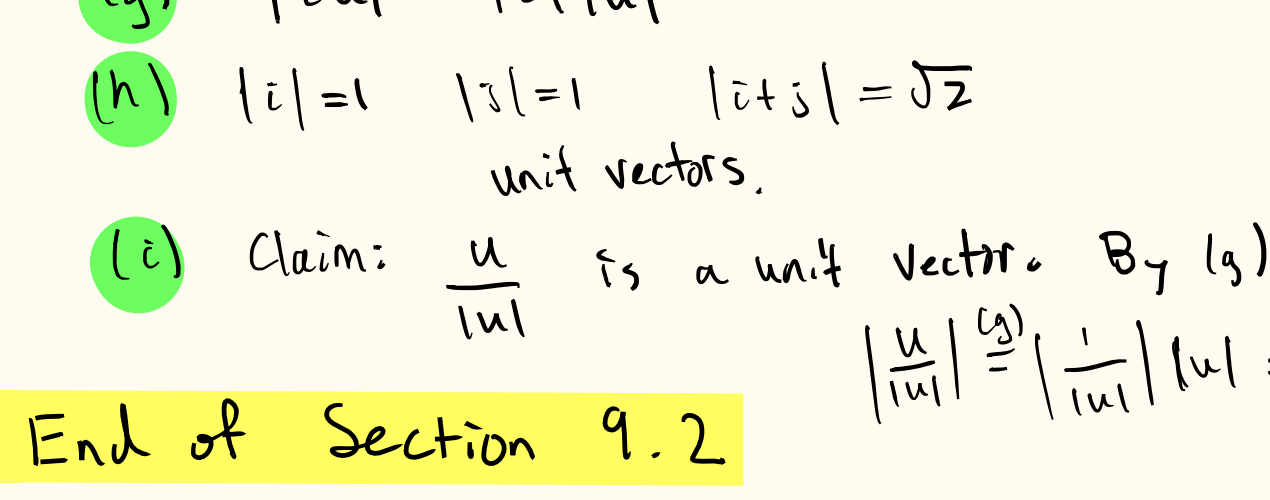 (h) |i| = 1 |j| = 1 |i + j| = √2
unit vectors.
(i) Claim: u/|u| is a unit vector. By (g)
|u/|u|| (g)= |1/|u|| |u| =
End of Section 9.2